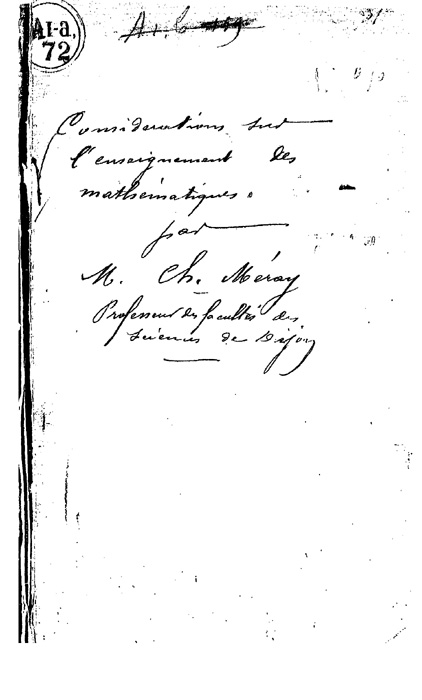 AI-a,
72
Considerations sur
l'enseignement des
mathématiques.
par
M. Ch. Méray
Professeur des facultés des
sciences de Dijon